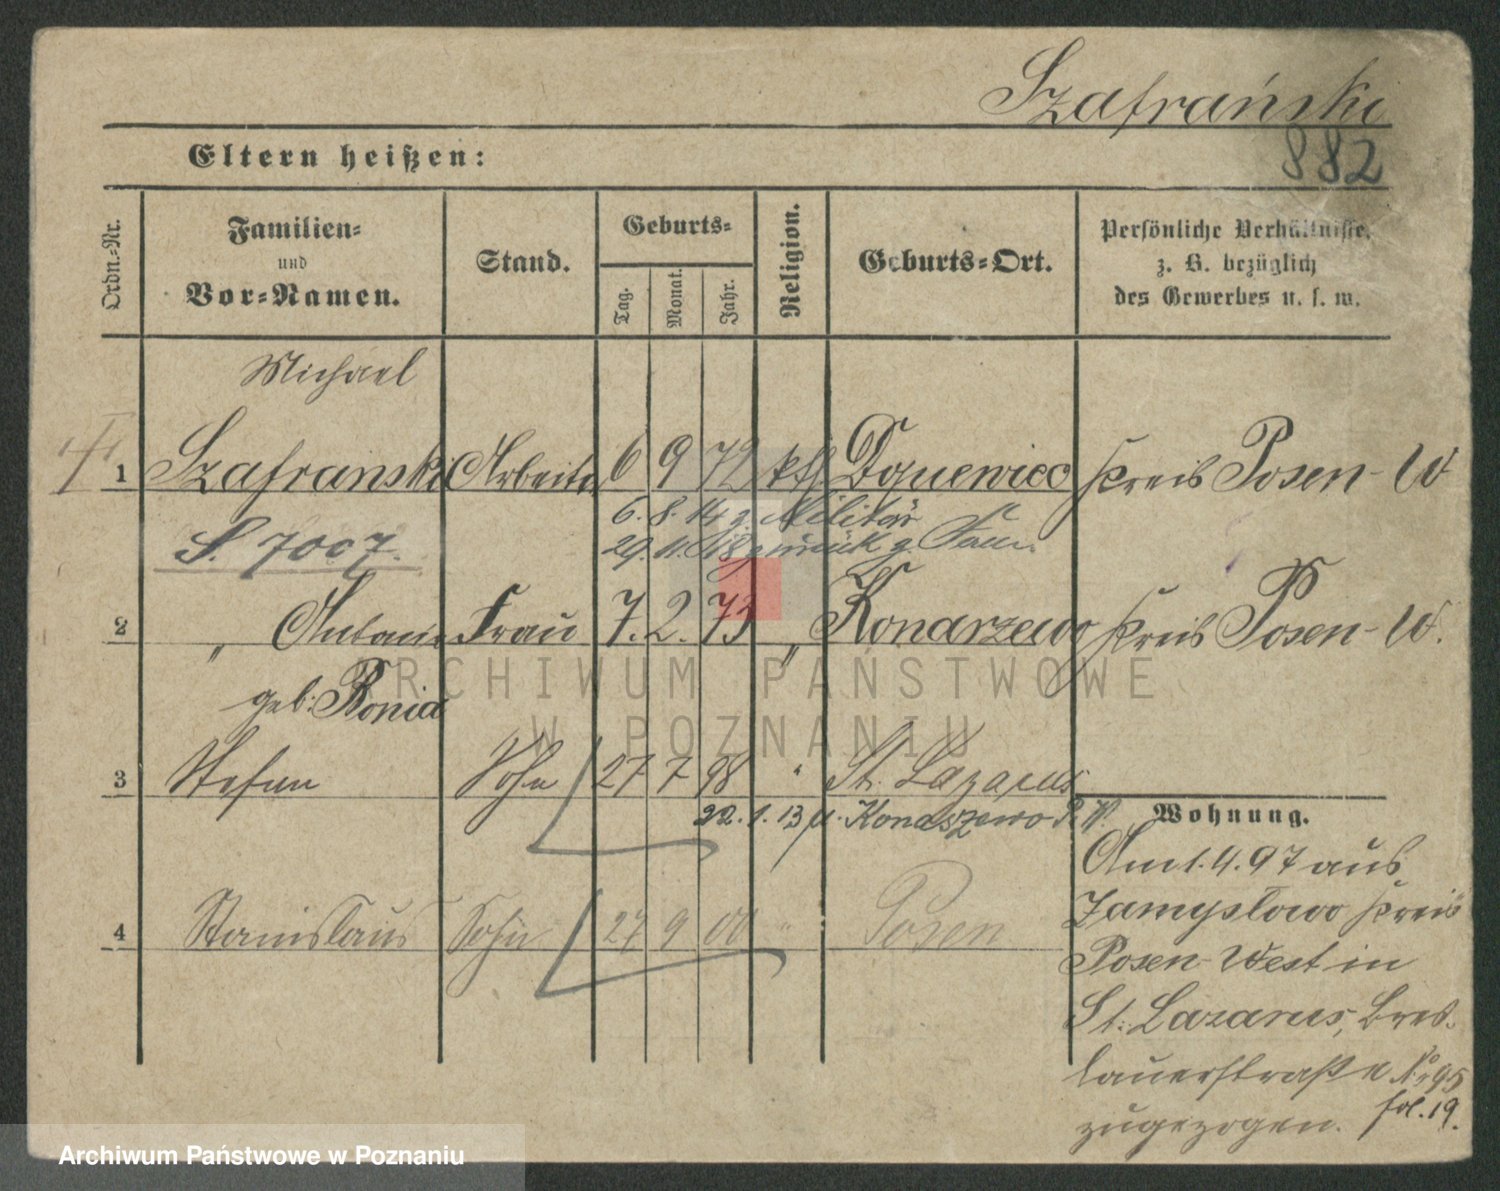 Szafrański
882
Eltern heißen:
Ordn.-Nr.
Familien- und Vor-Namen.
Stand.
Geburts-
Tag.
Monat.
Jahr.
Religion.
Geburts-Ort.
Persönliche Verhältnisse,
z. B. bezüglich
des Gewerbes u. s. w.
Michael
1 Szafranski Arbeiter 6 9 72 kth Kreis Posen-W
6. 8. 14 z. Militär
S. 7007. 29. 11. 18 zurück
2 " Antonie Frau 7. 2. 73 " Konarzewo Kreis Posen-W.
geb:
ARCHIWUM PAŃSTWOWE
W POZNANIU
3 Stefan Sohn 27 7 98 " St. Lazarus
22. 1. 13 n. Konaszewo P. W.
Wohnung.
Am 1. 4. 97 aus
4 Stanislaus Sohn 27 9 00 " Posen
Zamyslowo Kreis
Posen-West in
St. Lazarus, Bres-
lauerstraße No 95
zugezogen. fol. 19.
Archiwum Państwowe w Poznaniu